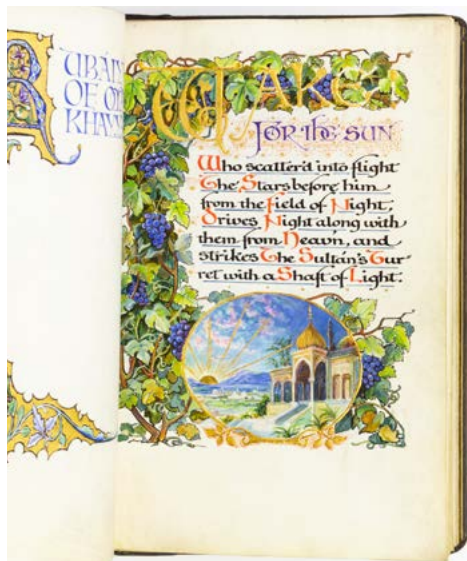 RUBÁIY
OF OM
KHAYY
WAKE!
FOR the SUN
Who scatter'd into flight
The Stars before him
from the Field of Night,
Drives Night along with
them from Heav'n, and
strikes The Sultán's Tur-
ret with a Shaft of Light.